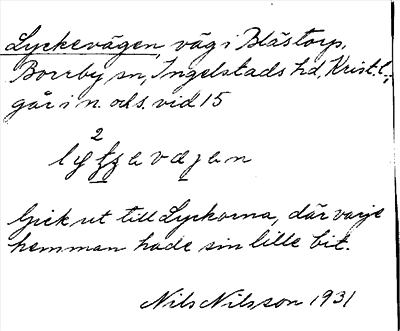 Lyckevägen, väg i Blästorp,
Borrby sn, Ingelstads hd, Krist. l.;
går i n. o. ds. vid 15
2
Gick ut till Lyckorna, där varje
hemman hade sin lille bit.
Nils Nilsson 1931